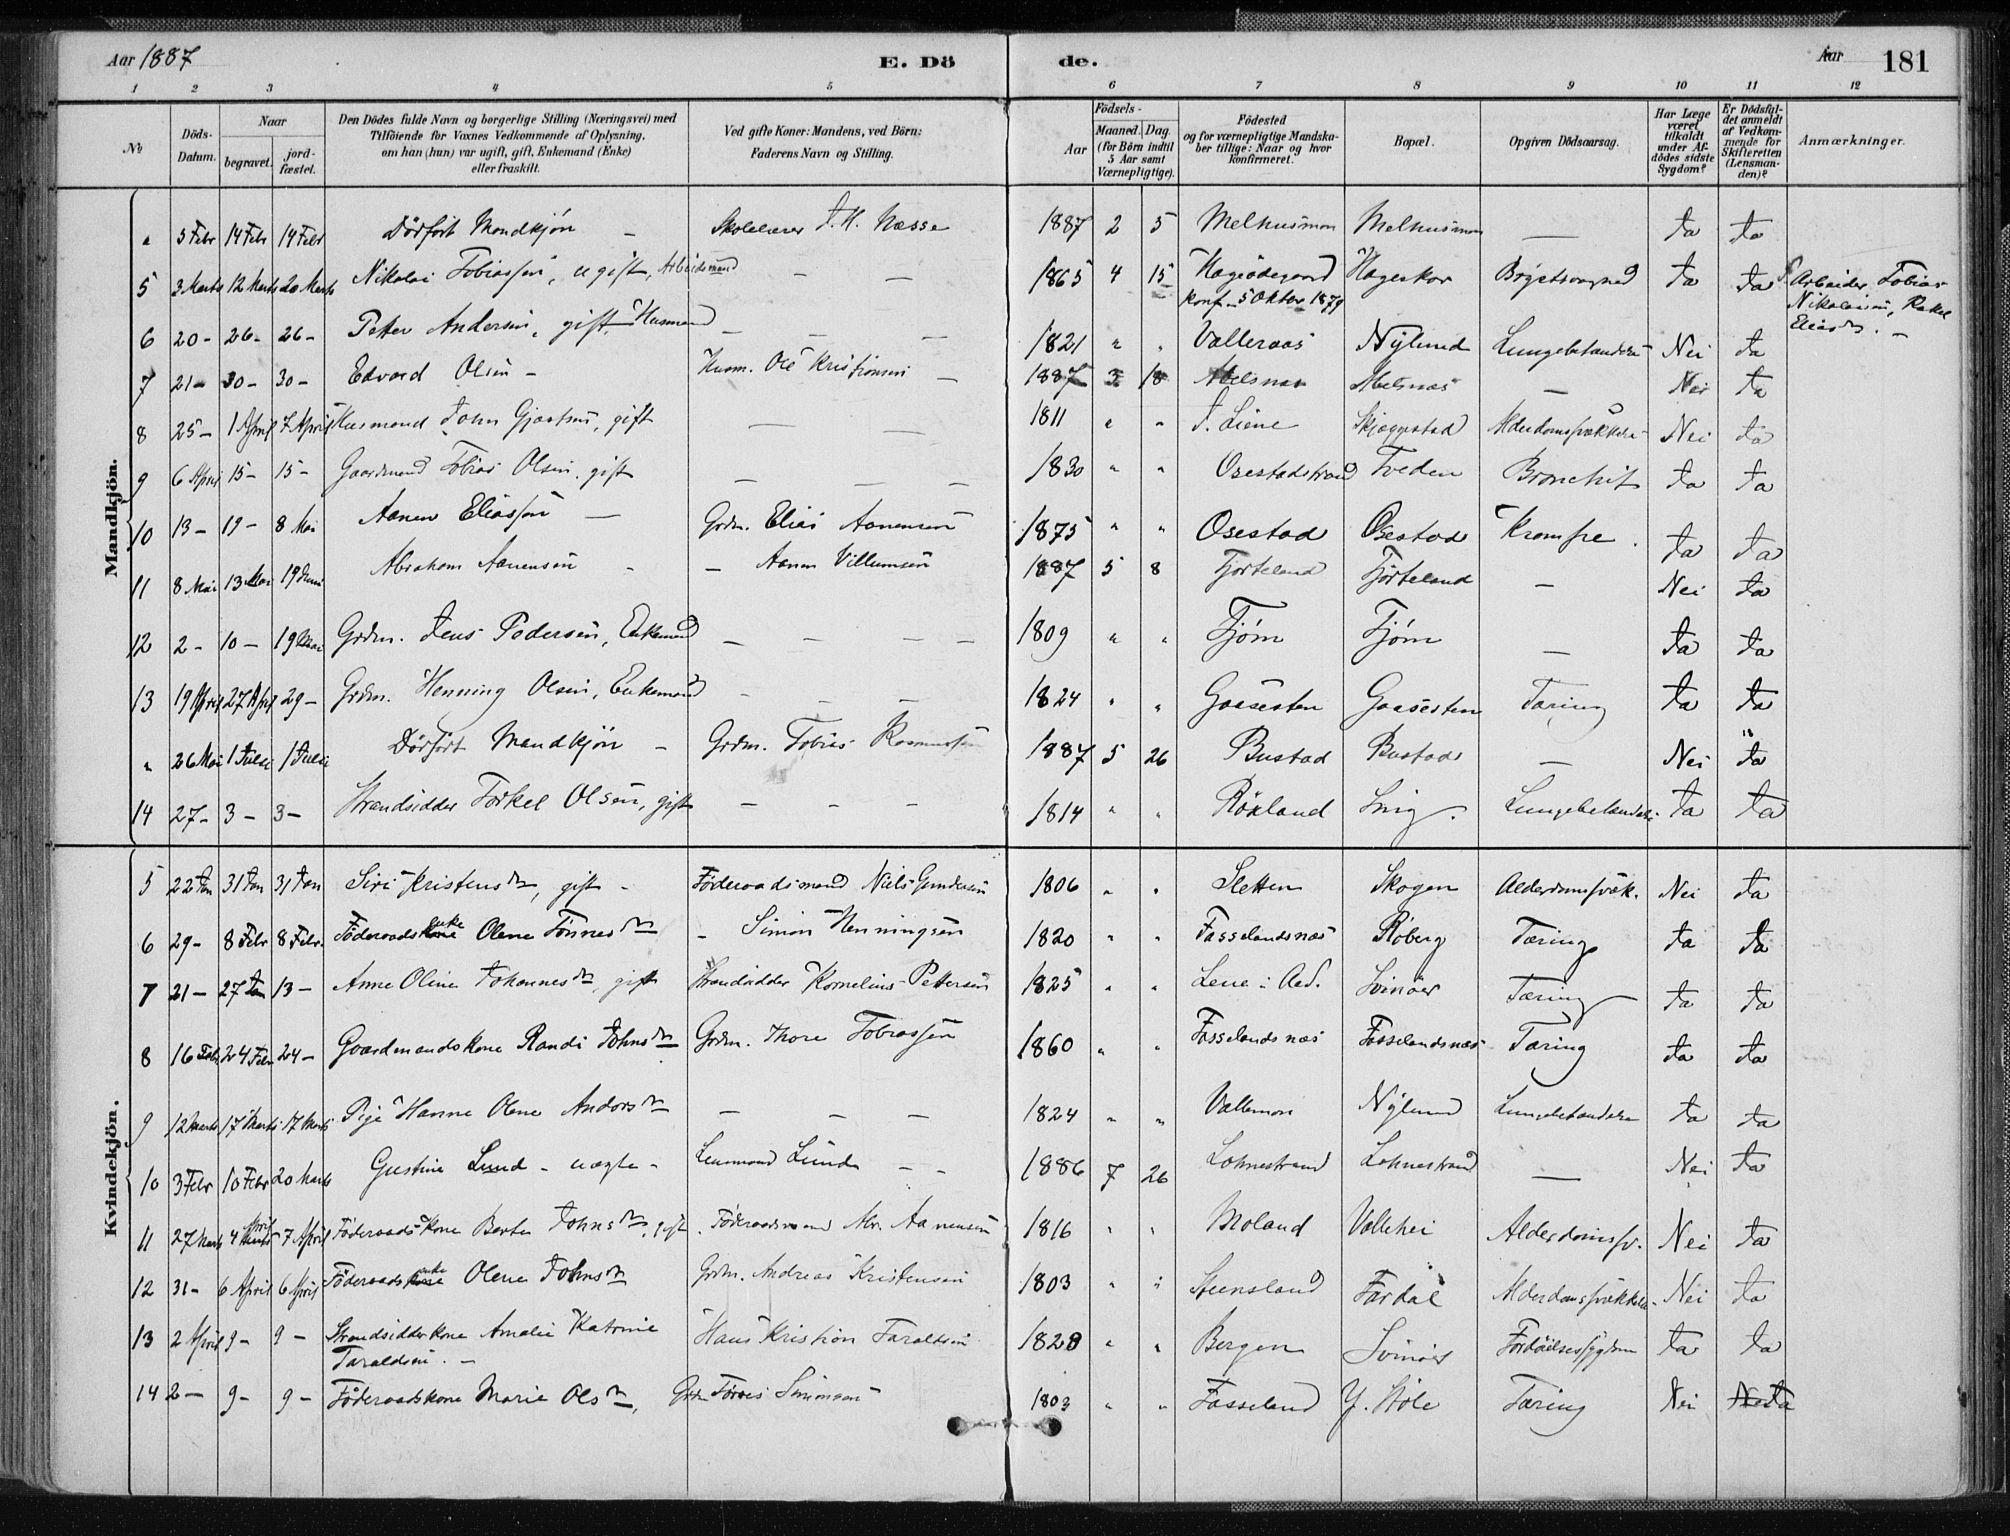 Aar 1887
E. Dö
de.
Aar
181
1 2 3 4 5 6 7 8 9 10 11 12
No
Döds-Datum.
Naar
begravet.
jord-fæstet.
Den Dödes fulde Navn og borgerlige Stilling (Næringsvei) med
Tilföiende for Voxnes Vedkommende af Oplysning,
om han (hun) var ugift, gift, Enkemand (Enke)
eller fraskilt.
Ved gifte Koner: Mandens, ved Börn:
Faderens Navn og Stilling.
Födsels-
Aar
Maaned. Dag.
(for Börn indtil
5 Aar samt
Værnepligtige).
Födested
og for værnepligtige Mandska-
ber tillige: Naar og hvor
konfirmeret.
Bopæl.
Opgiven Dödsaarsag.
Har Læge
været
tilkaldt
under Af-
dödes sidste
Sygdom?
Er Dödsfal-
det anmeldt
af Vedkom-
mende for
Skifteretten
(Lensman-
den)?
Anmærkninger.
Mandkjön.
" 5 Febr 14 Febr 14 Febr Dödfödt Mandkjön – Skolelærer J. H. Næsse 1887 2 5 Melhusmon Melhusmon — Ja Ja
5 3 Marts 12 Marts 20 Marts Nikolai Tobiassen, ugift, Arbeidsmand – – 1865 4 15 Hageödegaard Hageskov Ja Ja Arbeider Tobias
konf. 5 Oktbr 1879 Nikolaisen, Rakel
Eliasdtr. –
6 20 – 26 – 26 – Peter Andersen, gift, Husmand – – – 1821 " " Valleraas Nylund Lungebetændelse Nei Ja
7 21 – 30 – 30 – Edvard Olsen – Husm. Ole Kristiansen – 1887 3 18 Abelsnæs Abelsnæs — Nei Ja
8 25 – 1 April 7 April Husmand John Gjertsen, gift – – 1811 " " Liene Skjeggestad Alderdomssvækkelse Nei Ja
9 6 April 15 – 15 – Gaardmand Tobias Olsen, gift – – – 1830 " " Osestadstrand Tveden Bronchit Ja Ja
10 13 – 19 – 8 Mai Aanen Eliassen – Grdm. Elias Aanensen 1875 " " Osestad Osestad Krampe. Ja Ja
11 8 Mai 13 Mai 19 Juni Abraham Aanensen – – Aanen Villumsen 1887 5 8 Fjorteland Fjörteland – Nei Ja
12 2 – 10 – 19 Mai Grdm. Jens Pedersen, Enkemand – – – – 1809 " " Tjöm Tjöm — Ja Ja
13 19 April 27 April 29 – Grdm. Henning Olsen, Enkemand – – – 1824 " " Gaasesten Gaasesten Tæring Ja Ja
" 26 Mai 1 Juli 1 Juli Dödfödt Mandkjön – Grdm. Tobias Rasmussen 1887 5 26 Bustad Bustad — Nei Ja
14 27 – 3 – 3 – Strandsidder Torkel Olsen, gift – – – 1814 " " Röxland Snig. Lungebetændelse Ja Ja
Kvindekjön.
5 22 Jan 31 Jan 31 Jan Siri Kristensdtr, gift – Föderaadsmand Niels Gundersen 1806 " " Sletten Skogen Alderdomssvæk. Nei Ja
6 29 – 8 Febr 8 Febr. Föderaadsenke Olene Tönnesdtr – Simon Henningsen 1820 " " Fasselandsnæs Röberg Tæring Ja Ja
7 21 – 27 Jan 13 – Anne Oline Johannesdtr, gift Strandsidder Kornelius Pettersen 1825 " " Lene i Aud. Svinöer Tæring Ja Ja
8 16 Febr 24 Febr 24 – Gaardmandskone Randi Johnsdtr Grdm. Thore Tobiassen 1860 " " Fasselandsnæs Fasselandsnæs Tæring Ja Ja
9 12 Marts 17 Marts 17 Marts Pige Hanne Olene Andorsdtr – – – 1824 " " Vallemon Nylund Lungebetændelse Ja Ja
10 3 Febr 10 Febr 20 Marts Gustine Lund – uægte – Lensmand Lunde – – 1886 7 26 Lohnestrand Lohnestrand — Nei Ja
11 27 Marts 4 April 7 April Föderaadskone Berte Johnsdtr, gift. Föderaadsmand Abr. Aanensen 1816 " " Moland Vallehei Alderdomssv. Nei Ja
12 31 – 6 April 6 April Föderaadsenke Olene Johnsdtr Grdm. Andreas Kristensen 1803 " " Steensland Fardal Alderdomssvækkelse Nei Ja
13 2 April 9 – 9 – Strandsidderkone Amalie Katrine Hans Kristian Taraldsen 1828 " " Bergen Svinöer Fordöielsessygdom Ja Ja
Taraldsen. –
14 2 – 9 – 9 – Föderaadskone Marie Olsdtr, Grdm Simonsen 1803 " " Fasseland Y. Höle Tæring Nei Ja